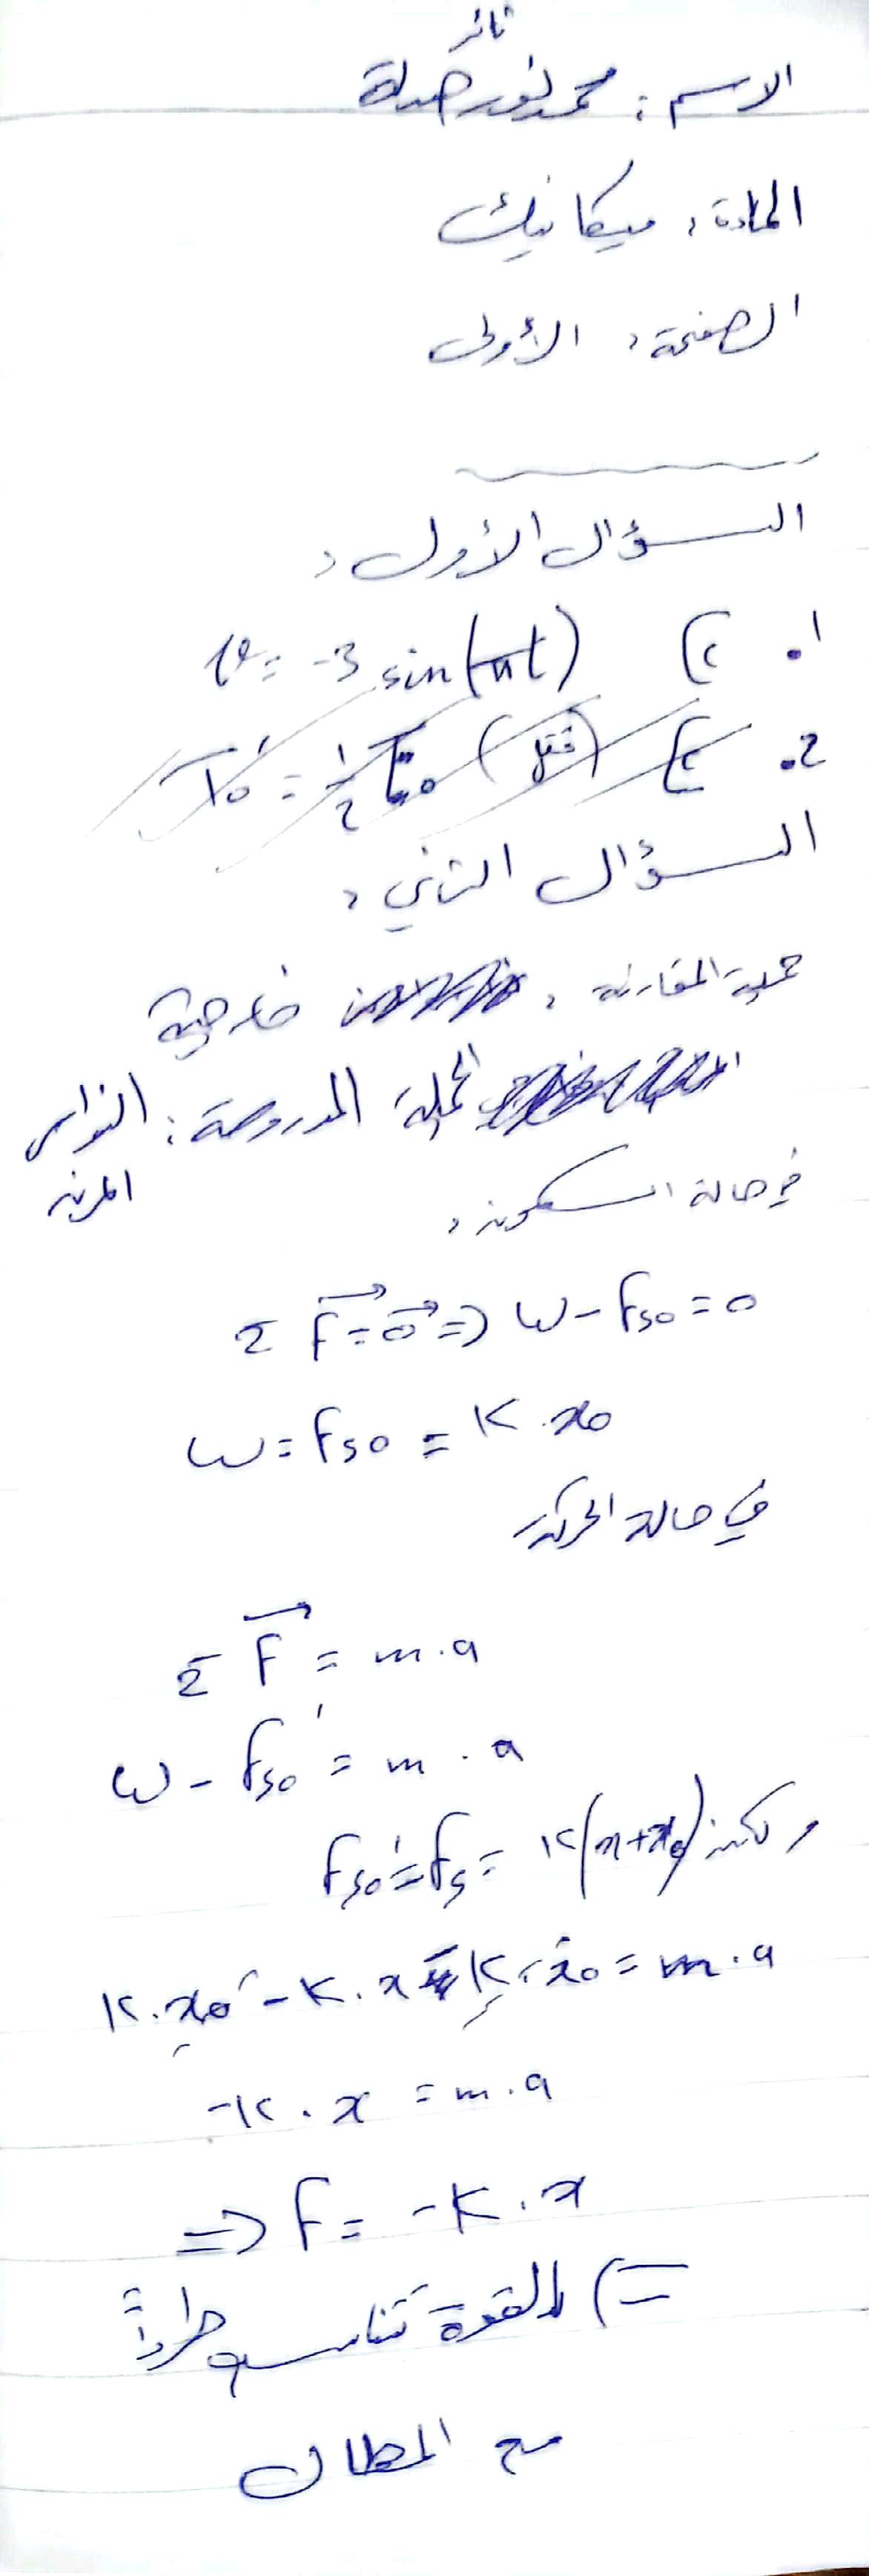 ثائر
الاسم : محمد نور
المادة : ميكانيك
الصفحة : الأولى
السؤال الأول :
1. c) v = -3 sin(πt)
2. c)
السؤال الثاني :
جملة المقارنة : خارجية
الجملة المدروسة : النواس
المرن
في حالة السكون :
Σ F = 0 => W - Fs0 = 0
W = Fs0 = K . x0
في حالة الحركة
Σ F = m . a
W - Fs0' = m . a
ولكن Fs0' = Fs = K(x + x0)
K . x0 - K . x - K . x0 = m . a
-K . x = m . a
=> F = -K . x
=> القوة تتناسب طرداً
مع المطال